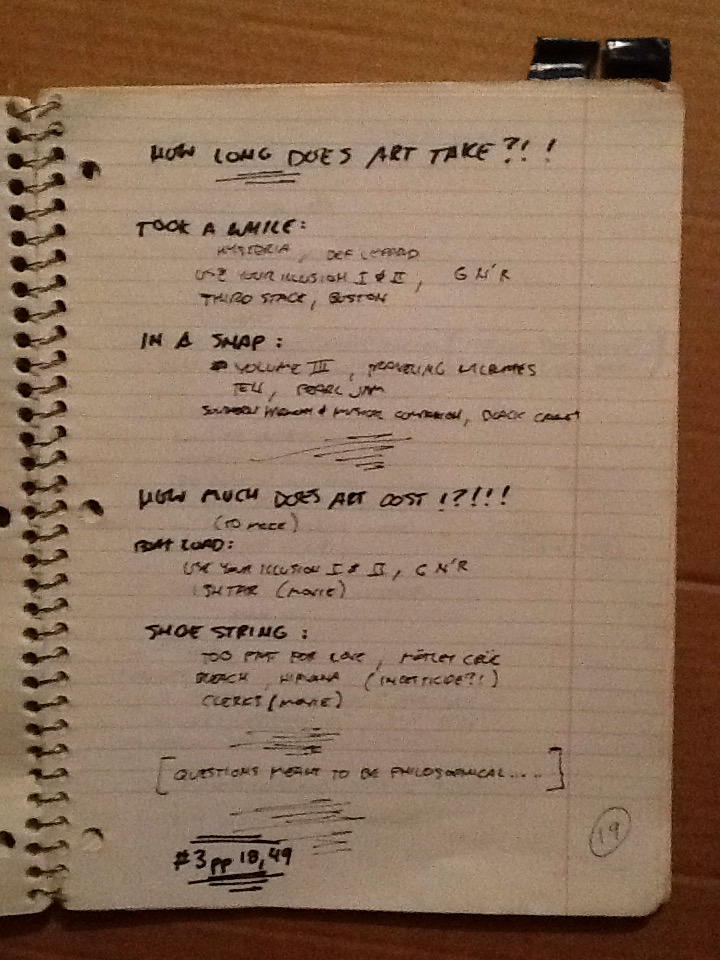 HOW LONG DOES ART TAKE?!!
TOOK A WHILE:
HYSTERIA, DEF LEPPARD
USE YOUR ILLUSION I & II, G N'R
THIRD STAGE, BOSTON
IN A SNAP:
VOLUME III, TRAVELING WILBURYS
TEN, PEARL JAM
SOUTHERN HARMONY & MUSICAL COMPANION, BLACK CROWES
HOW MUCH DOES ART COST!?!!!
(TO MAKE)
BOAT LOAD:
USE YOUR ILLUSION I & II, G N'R
ISHTAR (MOVIE)
SHOE STRING:
TOO FAST FOR LOVE, MÖTLEY CRÜE
BLEACH, NIRVANA (INCESTICIDE?!)
CLERKS (MOVIE)
[QUESTIONS MEANT TO BE PHILOSOPHICAL.....]
19
#3 pp 18,49